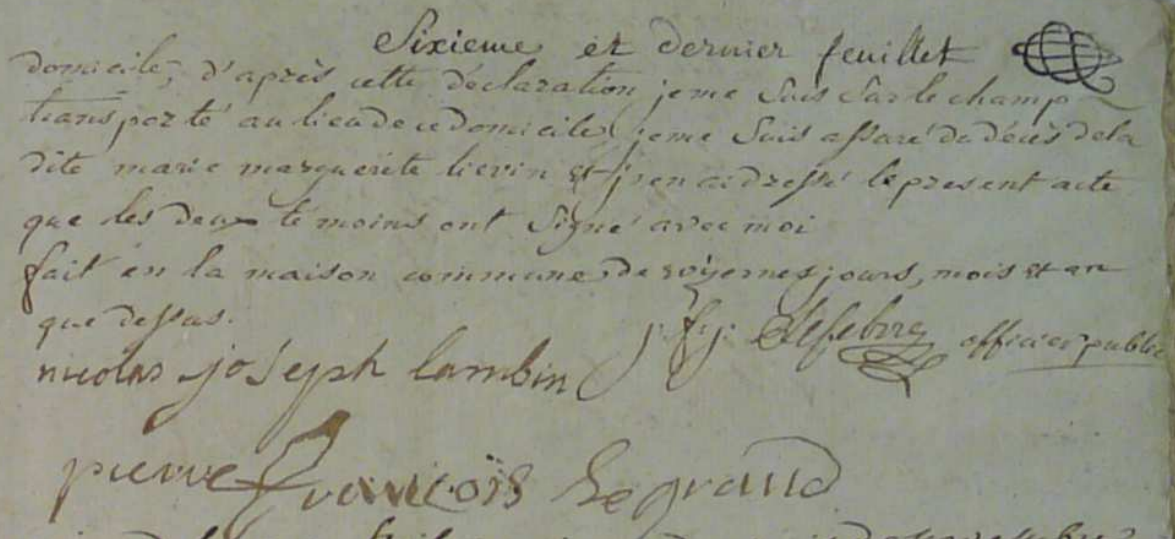 Sixieme et dernier feuillet
domicile, d'après cette déclaration, je me suis sur le champ
transporté au lieu de ce domicile, je me suis assuré du décès de la
dite marie marguerite lievin et j'en ai dressé le present acte
que les deux témoins ont signé avec moi
fait en la maison commune de voyennes jours, mois et an
que dessus.
j. fs. j. Lefebvre officier public
nicolas joseph lambin
pierre françois Legrand